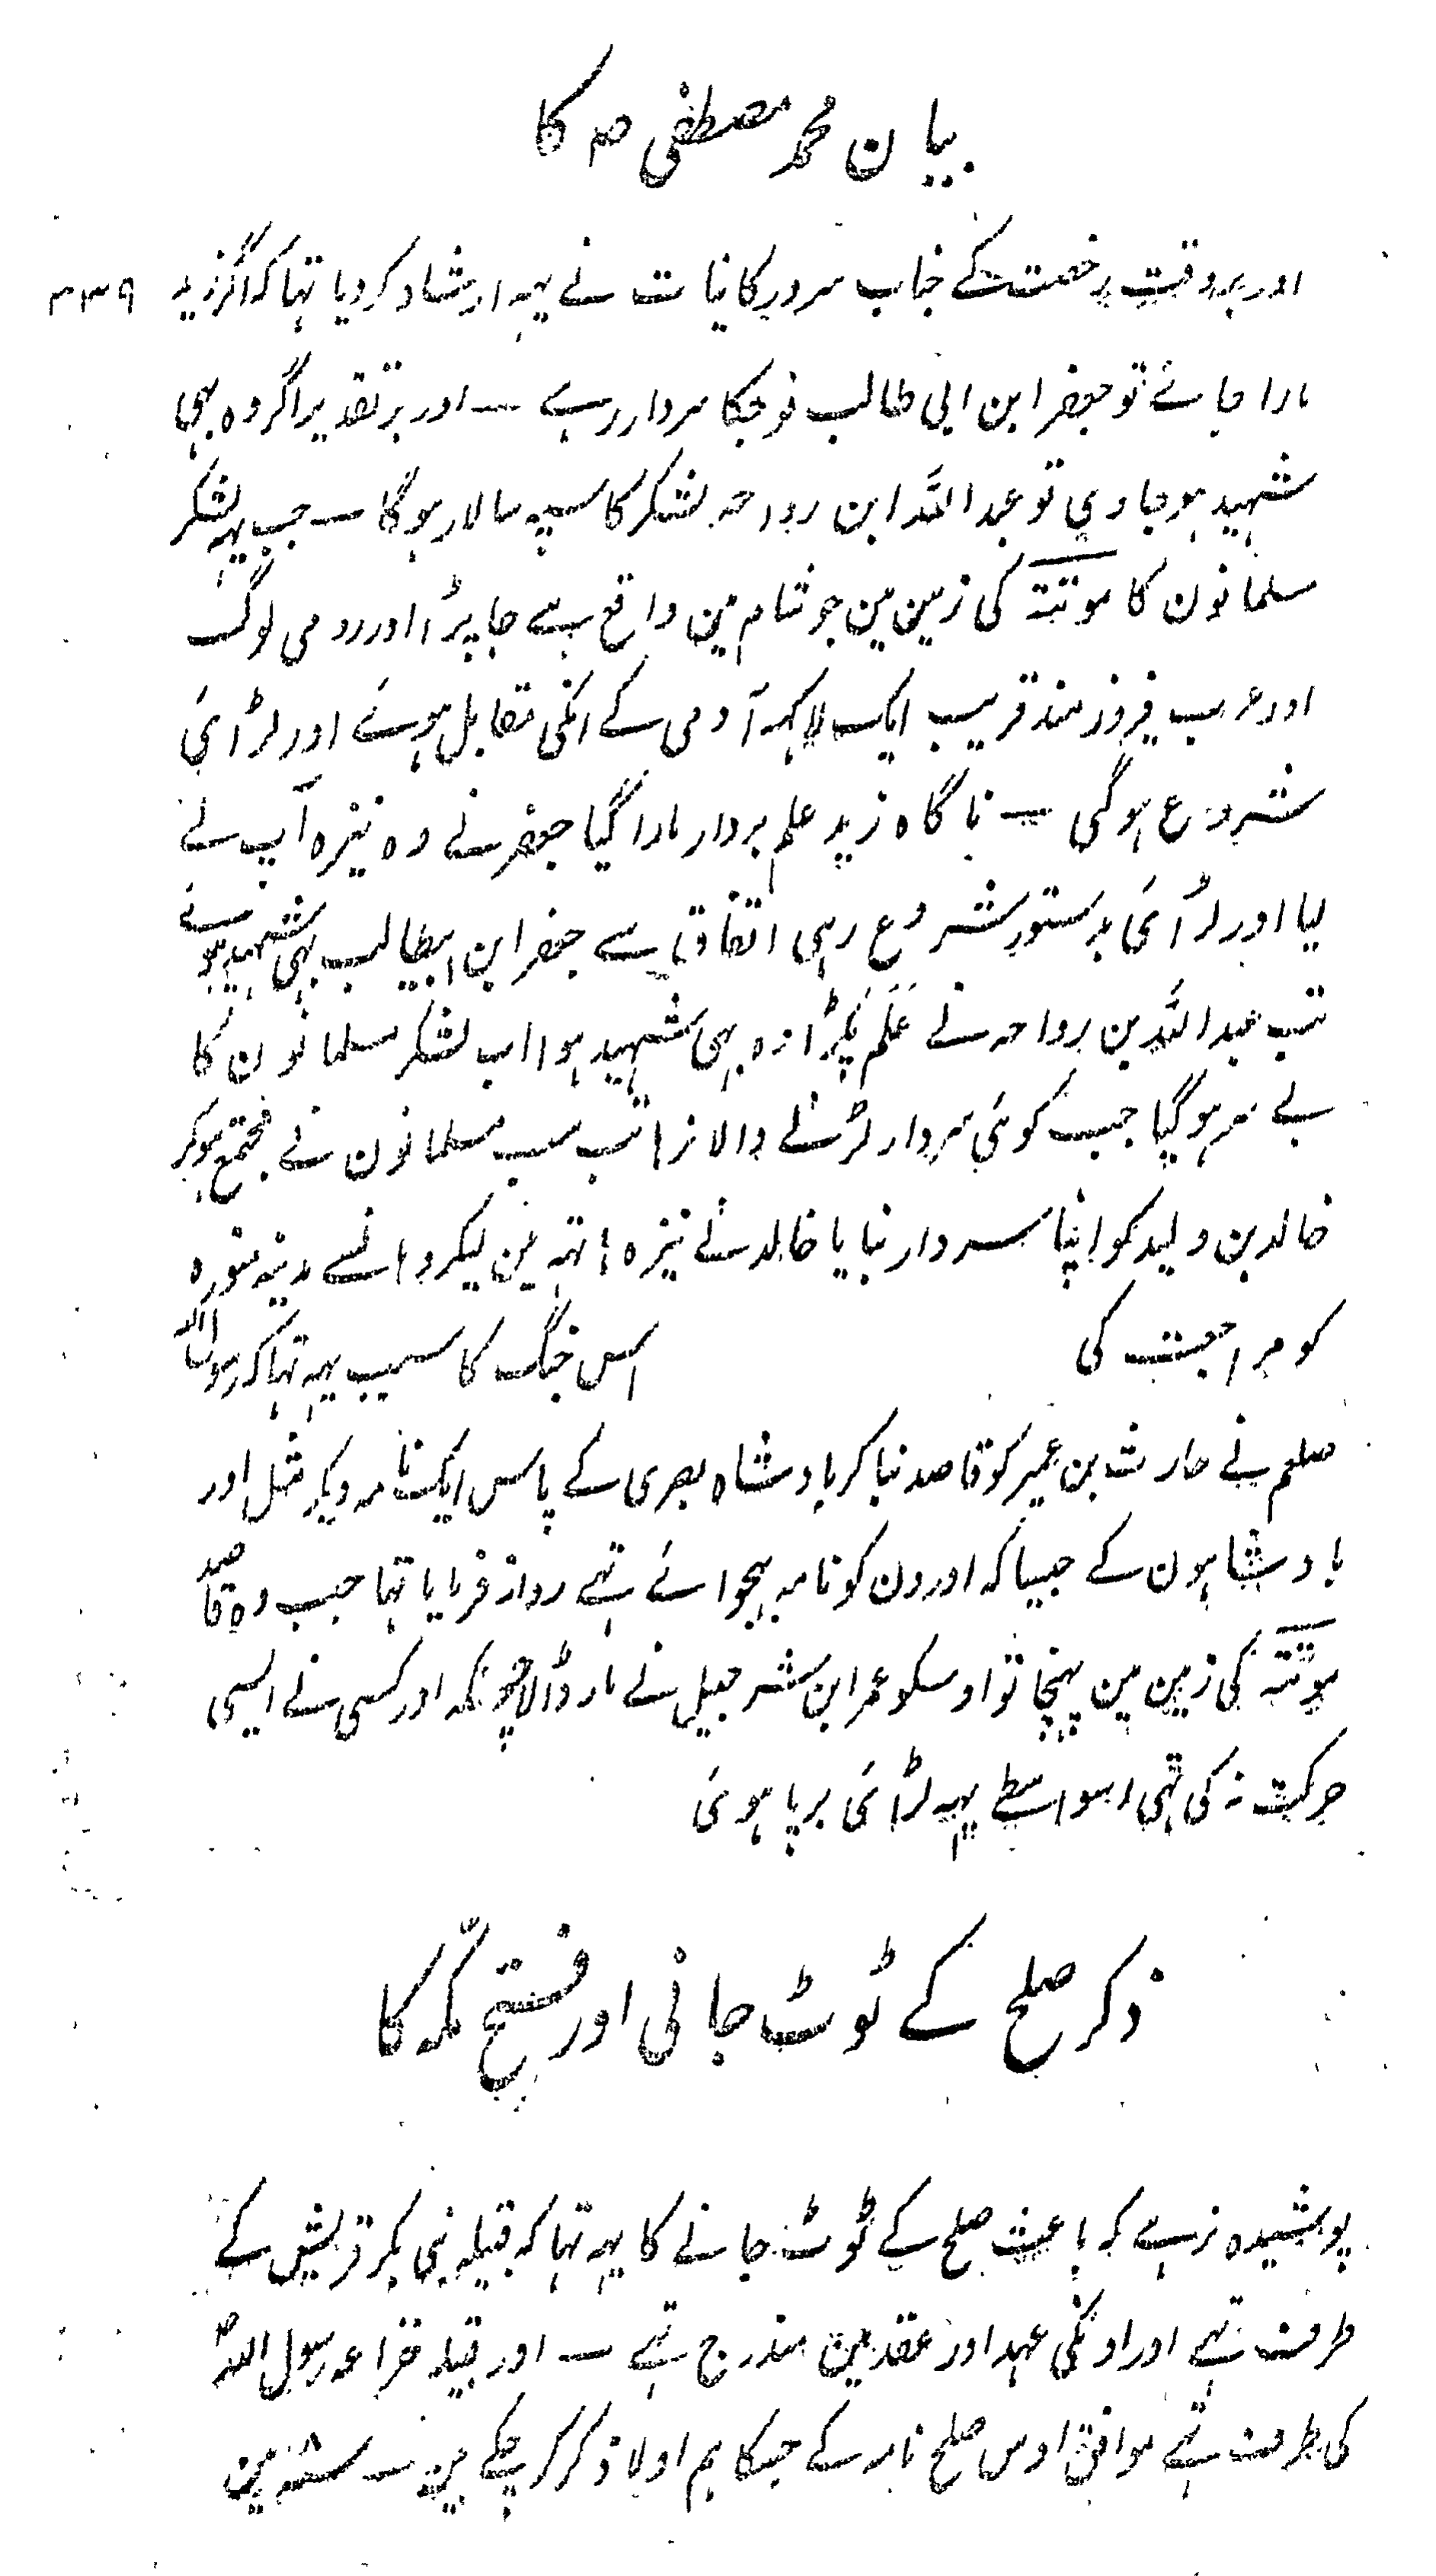 بیان محمد مصطفی صہ کا
اور بر وقت رخصت کے جناب سرور کائنات نے یہہ ارشاد کر دیا تہا کہ اگر زید ۳۳۹
مارا جائے تو جعفر ابن ابی طالب فوجکا سردار رہے — اور بر تقدیر اگر وہ بہی
شہید ہو جاوی تو عبد اللہ ابن رواحہ لشکر کا سپہ سالار ہوگا — جب یہہ لشکر
مسلمانون کا موتتہ کی زمین مین جو شام مین واقع ہے جا پڑا اور رومی لوگ
اور عرب فیروزمند قریب ایک لاکہہ آدمی کے انکی مقابل ہوئے اور لڑائی
شروع ہوگئی — ناگاہ زید علم بردار مارا گیا جعفر نے وہ نیزہ آپ لے
لیا اور لڑائی بدستور شروع رہی اتفاق سے جعفر ابن ابیطالب بہی شہید ہوئے
تب عبد اللہ بن رواحہ نے عَلَم پکڑا وہ بہی شہید ہوا اب لشکر مسلمانون کا
بے سر ہوگیا جب کوئی سردار لڑنے والا نرہا تب سب مسلمانون نے مجتمع ہوکر
خالد بن ولید کو اپنا سردار بنایا خالد نے نیزہ ہاتہہ مین لیکر وہانسے مدینہ منورہ
کو مراجعت کی اس جنگ کا سبب یہہ تہا کہ رسول اللہ
صلعم نے حارث بن عمیر کو قاصد بنا کر بادشاہ بصری کے پاس ایک نامہ دیکر مثل اور
بادشاہون کے جیسا کہ اورون کو نامہ بہجوائے تہے روانہ فرمایا تہا جب وہ قاصد
موتتہ کی زمین مین پہنچا تو اوسکو عمر ابن شرجیل نے مار ڈالا چونکہ اور کسی نے ایسی
حرکت نہ کی تہی اسواسطے یہہ لڑائی برپا ہوئی
ذکر صلح کے ٹوٹ جانی اور فتح مکّہ کا
پوشیدہ نرہے کہ باعث صلح کے ٹوٹ جانے کا یہہ تہا کہ قبیلہ بنی بکر قریش کے
طرف تہے اور اونکی عہد اور عقد مین مندرج تہے — اور قبیلہ خزاعہ رسول اللہ ص
کی طرف تہے موافق اوس صلح نامہ کے جسکا ہم اولا ذکر کر چکے ہین — مین